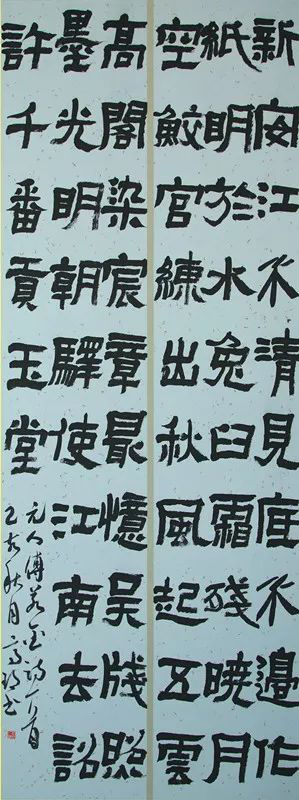 新安江水清見底水邊作
紙明於水兔臼霜殘曉月
空鮫宮練出秋風起五雲
高閣染宸章最憶吳牋照
墨光明朝驛使江南去詔
許千番貢玉堂
元人傅若金詩一首
己亥秋月 書